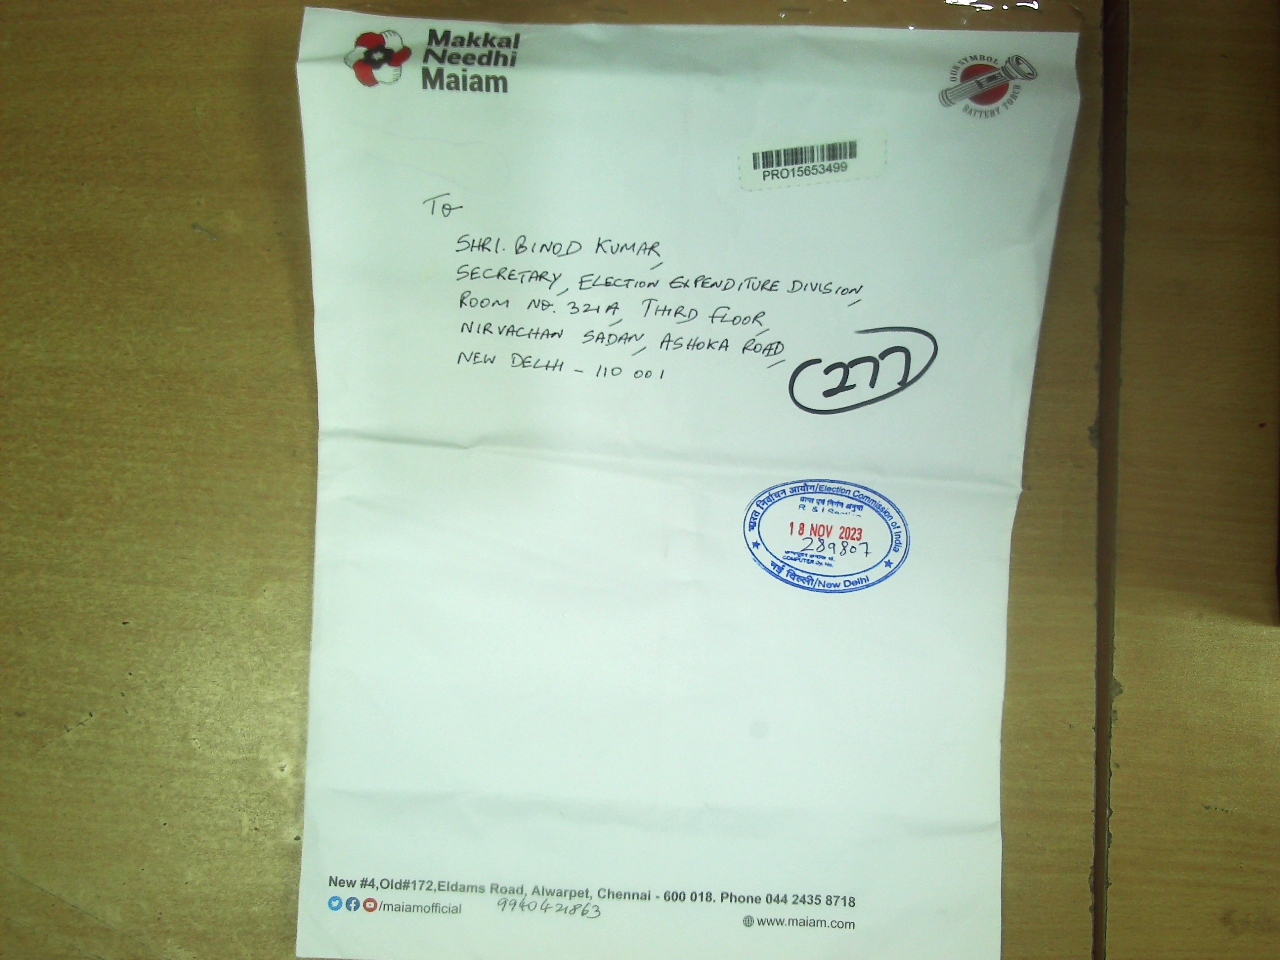 Makkal
Needhi
Maiam
OUR SYMBOL
BATTERY TORCH
PRO15653499
To
SHRI. BINOD KUMAR,
SECRETARY, ELECTION EXPENDITURE DIVISION,
ROOM NO. 321A, THIRD FLOOR,
NIRVACHAN SADAN, ASHOKA ROAD,
NEW DELHI - 110 001
277
भारत निर्वाचन आयोग/Election Commission of India
R & I Section
18 NOV 2023
289807
COMPUTER Dy. No.
नई दिल्ली/New Delhi
New #4,Old#172,Eldams Road, Alwarpet, Chennai - 600 018. Phone 044 2435 8718
/maiamofficial 9940421863
www.maiam.com